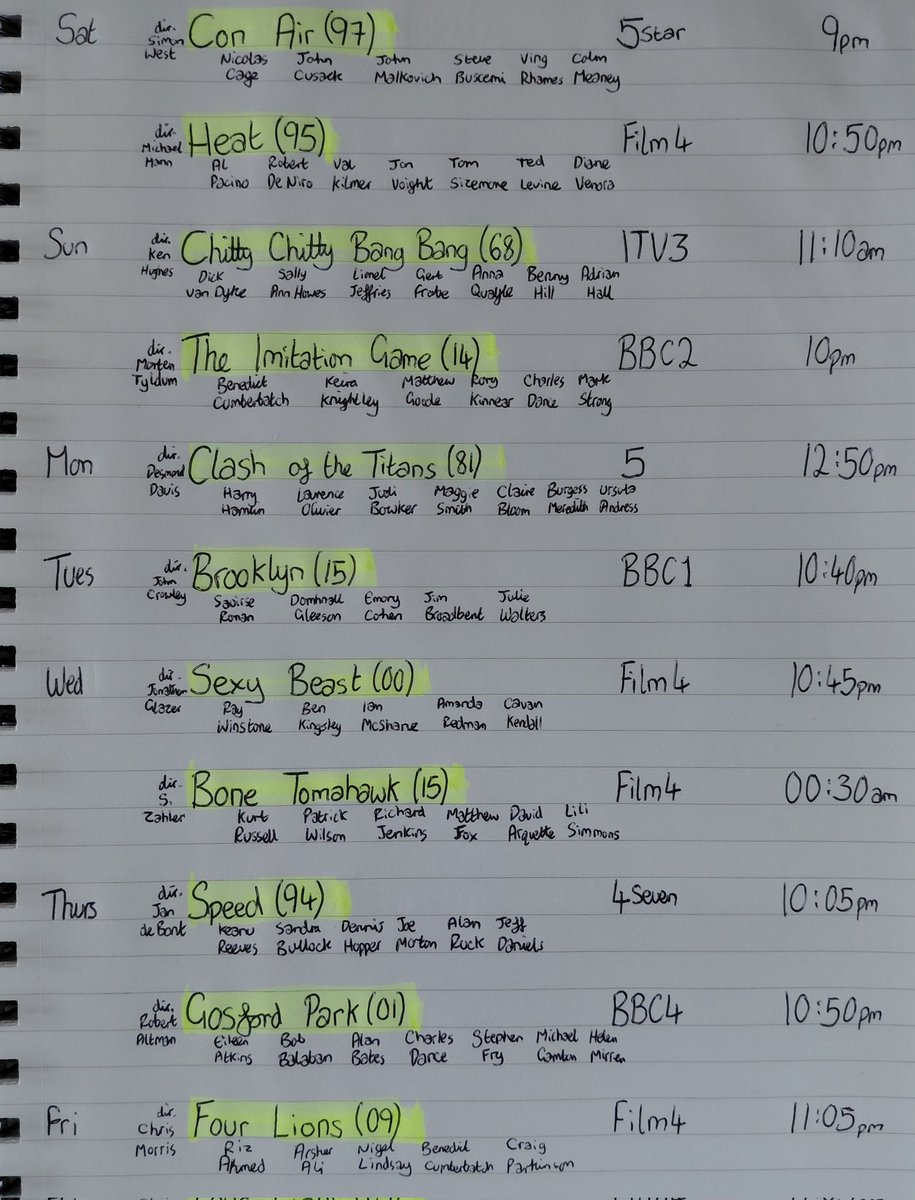 Sat dir. Con Air (97) 5Star 9pm
Simon West Nicolas Cage John Cusack John Malkovich Steve Buscemi Ving Rhames Colm Meaney
dir. Heat (95) Film4 10:50pm
Michael Mann Al Pacino Robert De Niro Val Kilmer Jon Voight Tom Sizemore Ted Levine Diane Venora
Sun dir. Chitty Chitty Bang Bang (68) ITV3 11:10am
Ken Hughes Dick van Dyke Sally Ann Howes Lionel Jeffries Gert Frobe Anna Quayle Benny Hill Adrian Hall
dir. The Imitation Game (14) BBC2 10pm
Morten Tyldum Benedict Cumberbatch Keira Knightley Matthew Goode Rory Kinnear Charles Dance Mark Strong
Mon dir. Clash of the Titans (81) 5 12:50pm
Desmond Davis Harry Hamlin Laurence Olivier Judi Bowker Maggie Smith Claire Bloom Burgess Meredith Ursula Andress
Tues dir. Brooklyn (15) BBC1 10:40pm
John Crowley Saoirse Ronan Domhnall Gleeson Emory Cohen Jim Broadbent Julie Walters
Wed dir. Sexy Beast (00) Film4 10:45pm
Jonathan Glazer Ray Winstone Ben Kingsley Ian McShane Amanda Redman Cavan Kendall
dir. Bone Tomahawk (15) Film4 00:30am
S. Zahler Kurt Russell Patrick Wilson Richard Jenkins Matthew Fox David Arquette Lili Simmons
Thurs dir. Speed (94) 4Seven 10:05pm
Jan de Bont Keanu Reeves Sandra Bullock Dennis Hopper Joe Morton Alan Ruck Jeff Daniels
dir. Gosford Park (01) BBC4 10:50pm
Robert Altman Eileen Atkins Bob Balaban Alan Bates Charles Dance Stephen Fry Michael Gambon Helen Mirren
Fri dir. Four Lions (09) Film4 11:05pm
Chris Morris Riz Ahmed Arsher Ali Nigel Lindsay Benedict Cumberbatch Craig Parkinson